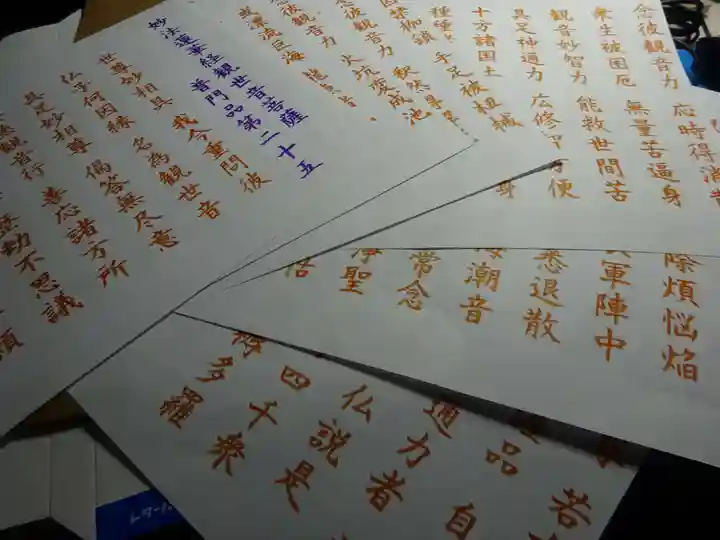 妙法蓮華経観世音菩薩
普門品第二十五
世尊妙相具 我今重問彼
仏子何因縁 名為観世音
具足妙相尊 偈答無尽意
観音行 善応諸方所
劫不思議
流巨海
念彼観音力
念彼観音力 火坑変成池
手足被
釈然
念彼観音力 応時得消
衆生被困厄 無量苦逼身
観音妙智力 能救世間苦
具足神通力 広修 方便
十方諸国土
種種
身
除煩悩焔
軍陣中
悉退散
潮音
常念
浄聖
若
品 自
通力者
仏説是
四千衆
多羅
レター